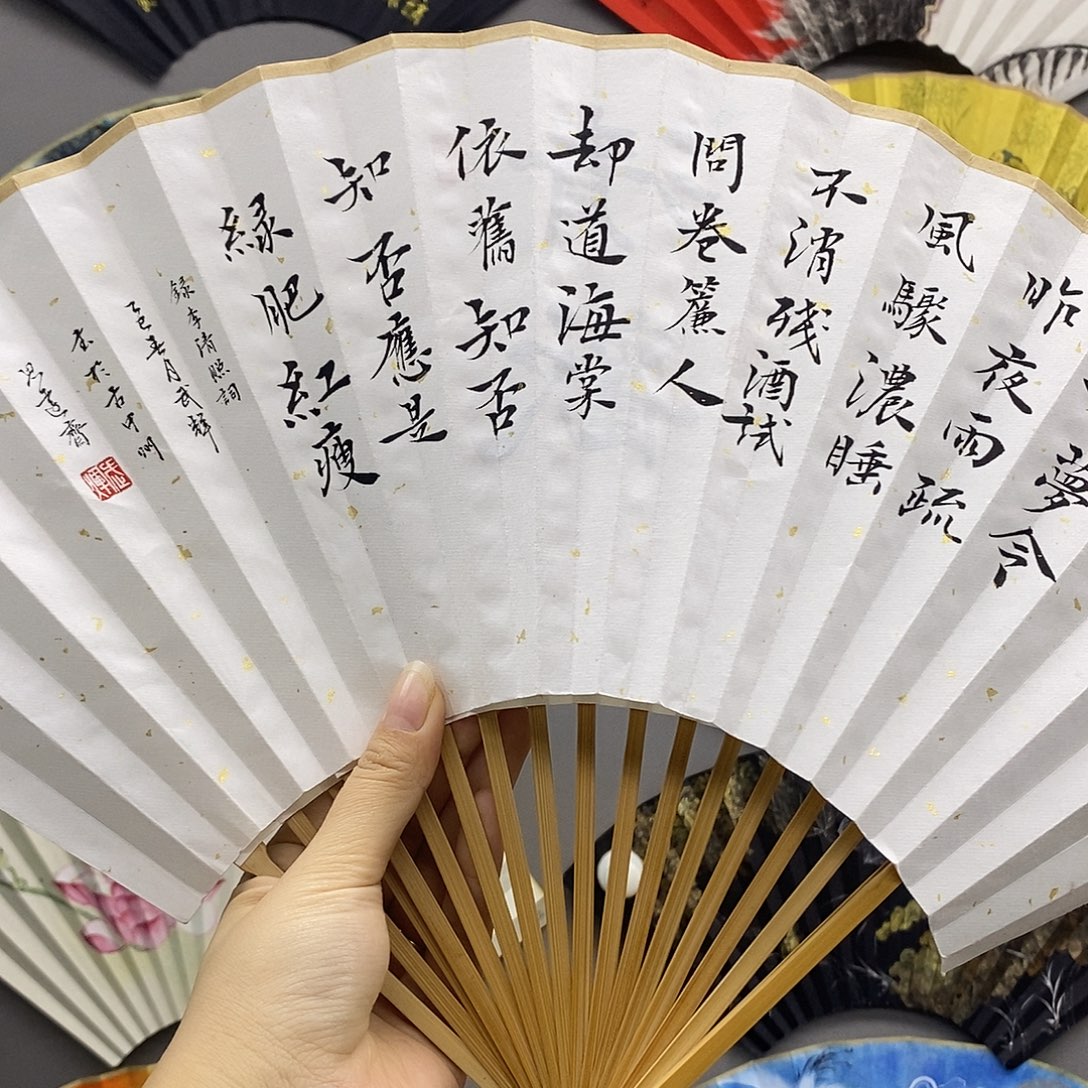 夢令
昨夜雨疏
風驟濃睡
不消残酒試
問卷簾人
却道海棠
依舊知否
知否應是
緑肥紅瘦
録李清照詞
乙巳春月武輝
書於古中州
思遠齋